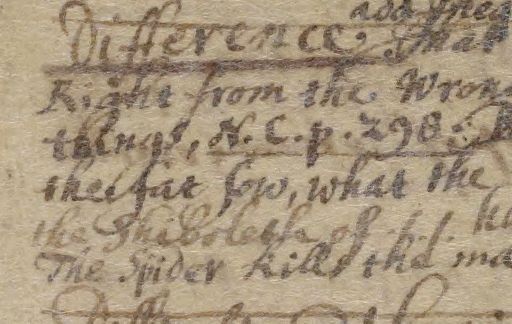 Difference
Right from the Wrong
things, N.C.p.298:
the fat sow, what the
the Shiboleth of
The Spider kills the